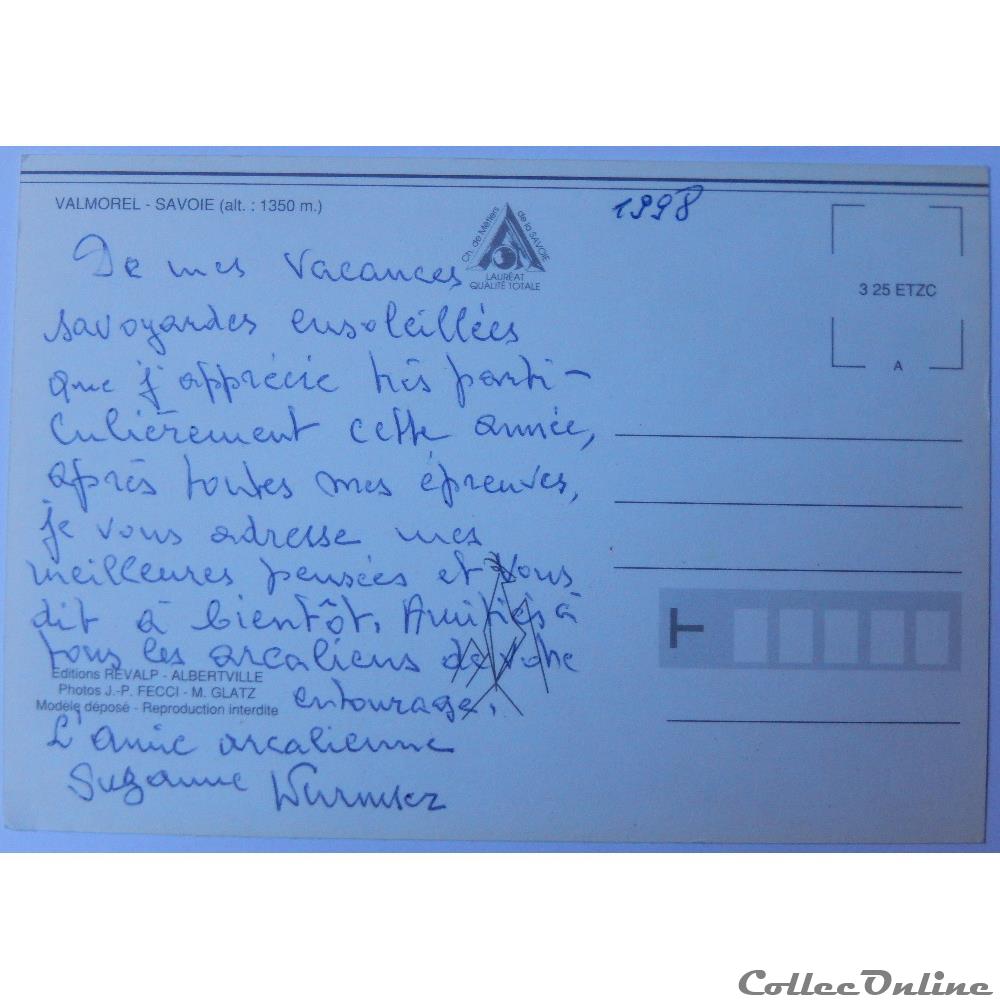 VALMOREL - SAVOIE (alt. : 1350 m.)
Ch. de Métiers de la SAVOIE
LAURÉAT
QUALITÉ TOTALE
1998
3 25 ETZC
A
De mes vacances
savoyardes ensoleillées
que j'apprécie très parti-
culièrement cette année,
après toutes mes épreuves,
je vous adresse mes
meilleures pensées et vous
dit à bientôt. Amitiés à
tous les arcaliens de votre
entourage.
Editions REVALP - ALBERTVILLE
Photos J.-P. FECCI - M. GLATZ
Modèle déposé - Reproduction interdite
L'amie arcalienne
Suzanne
T
CollecOnline